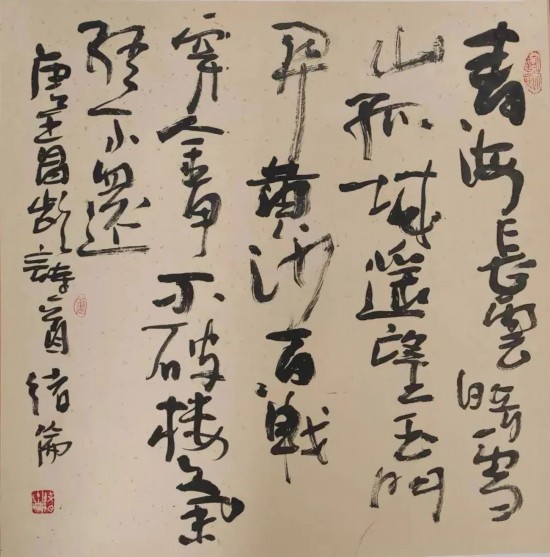 青海長雲暗雪
山孤城遥望玉門
関黄沙百戰
穿金甲不破楼
終不還
唐王昌齡詩首